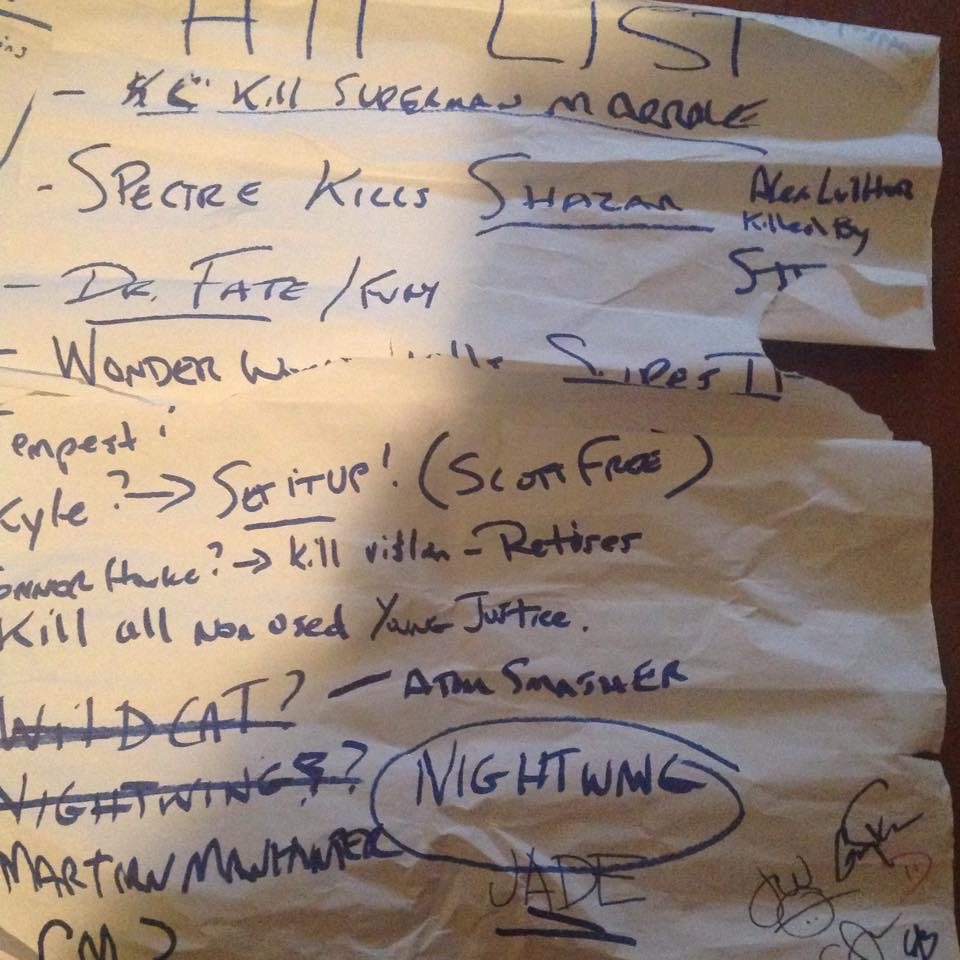 HIT LIST
- Kill Superman Marriage
- SPECTRE KILLS SHAZAM
Alex Luthor
Killed By
- DR. FATE / FURY
- WONDER
Tempest
Kyle? → Set it up! (Scott Free)
Connor Hawke? → Kill villan - Retires
Kill all non used Young Justice.
WILDCAT? - ATOM SMASHER
NIGHTWING?? NIGHTWING
MARTIAN MANHUNTER
JADE